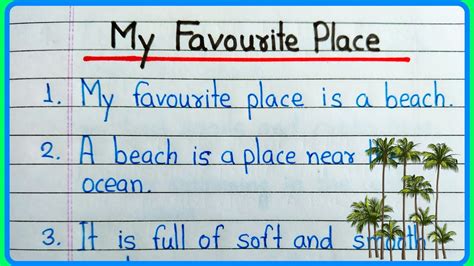 My Favourite Place
1. My favourite place is a beach.
2. A beach is a place near the
ocean.
3. It is full of soft and smooth